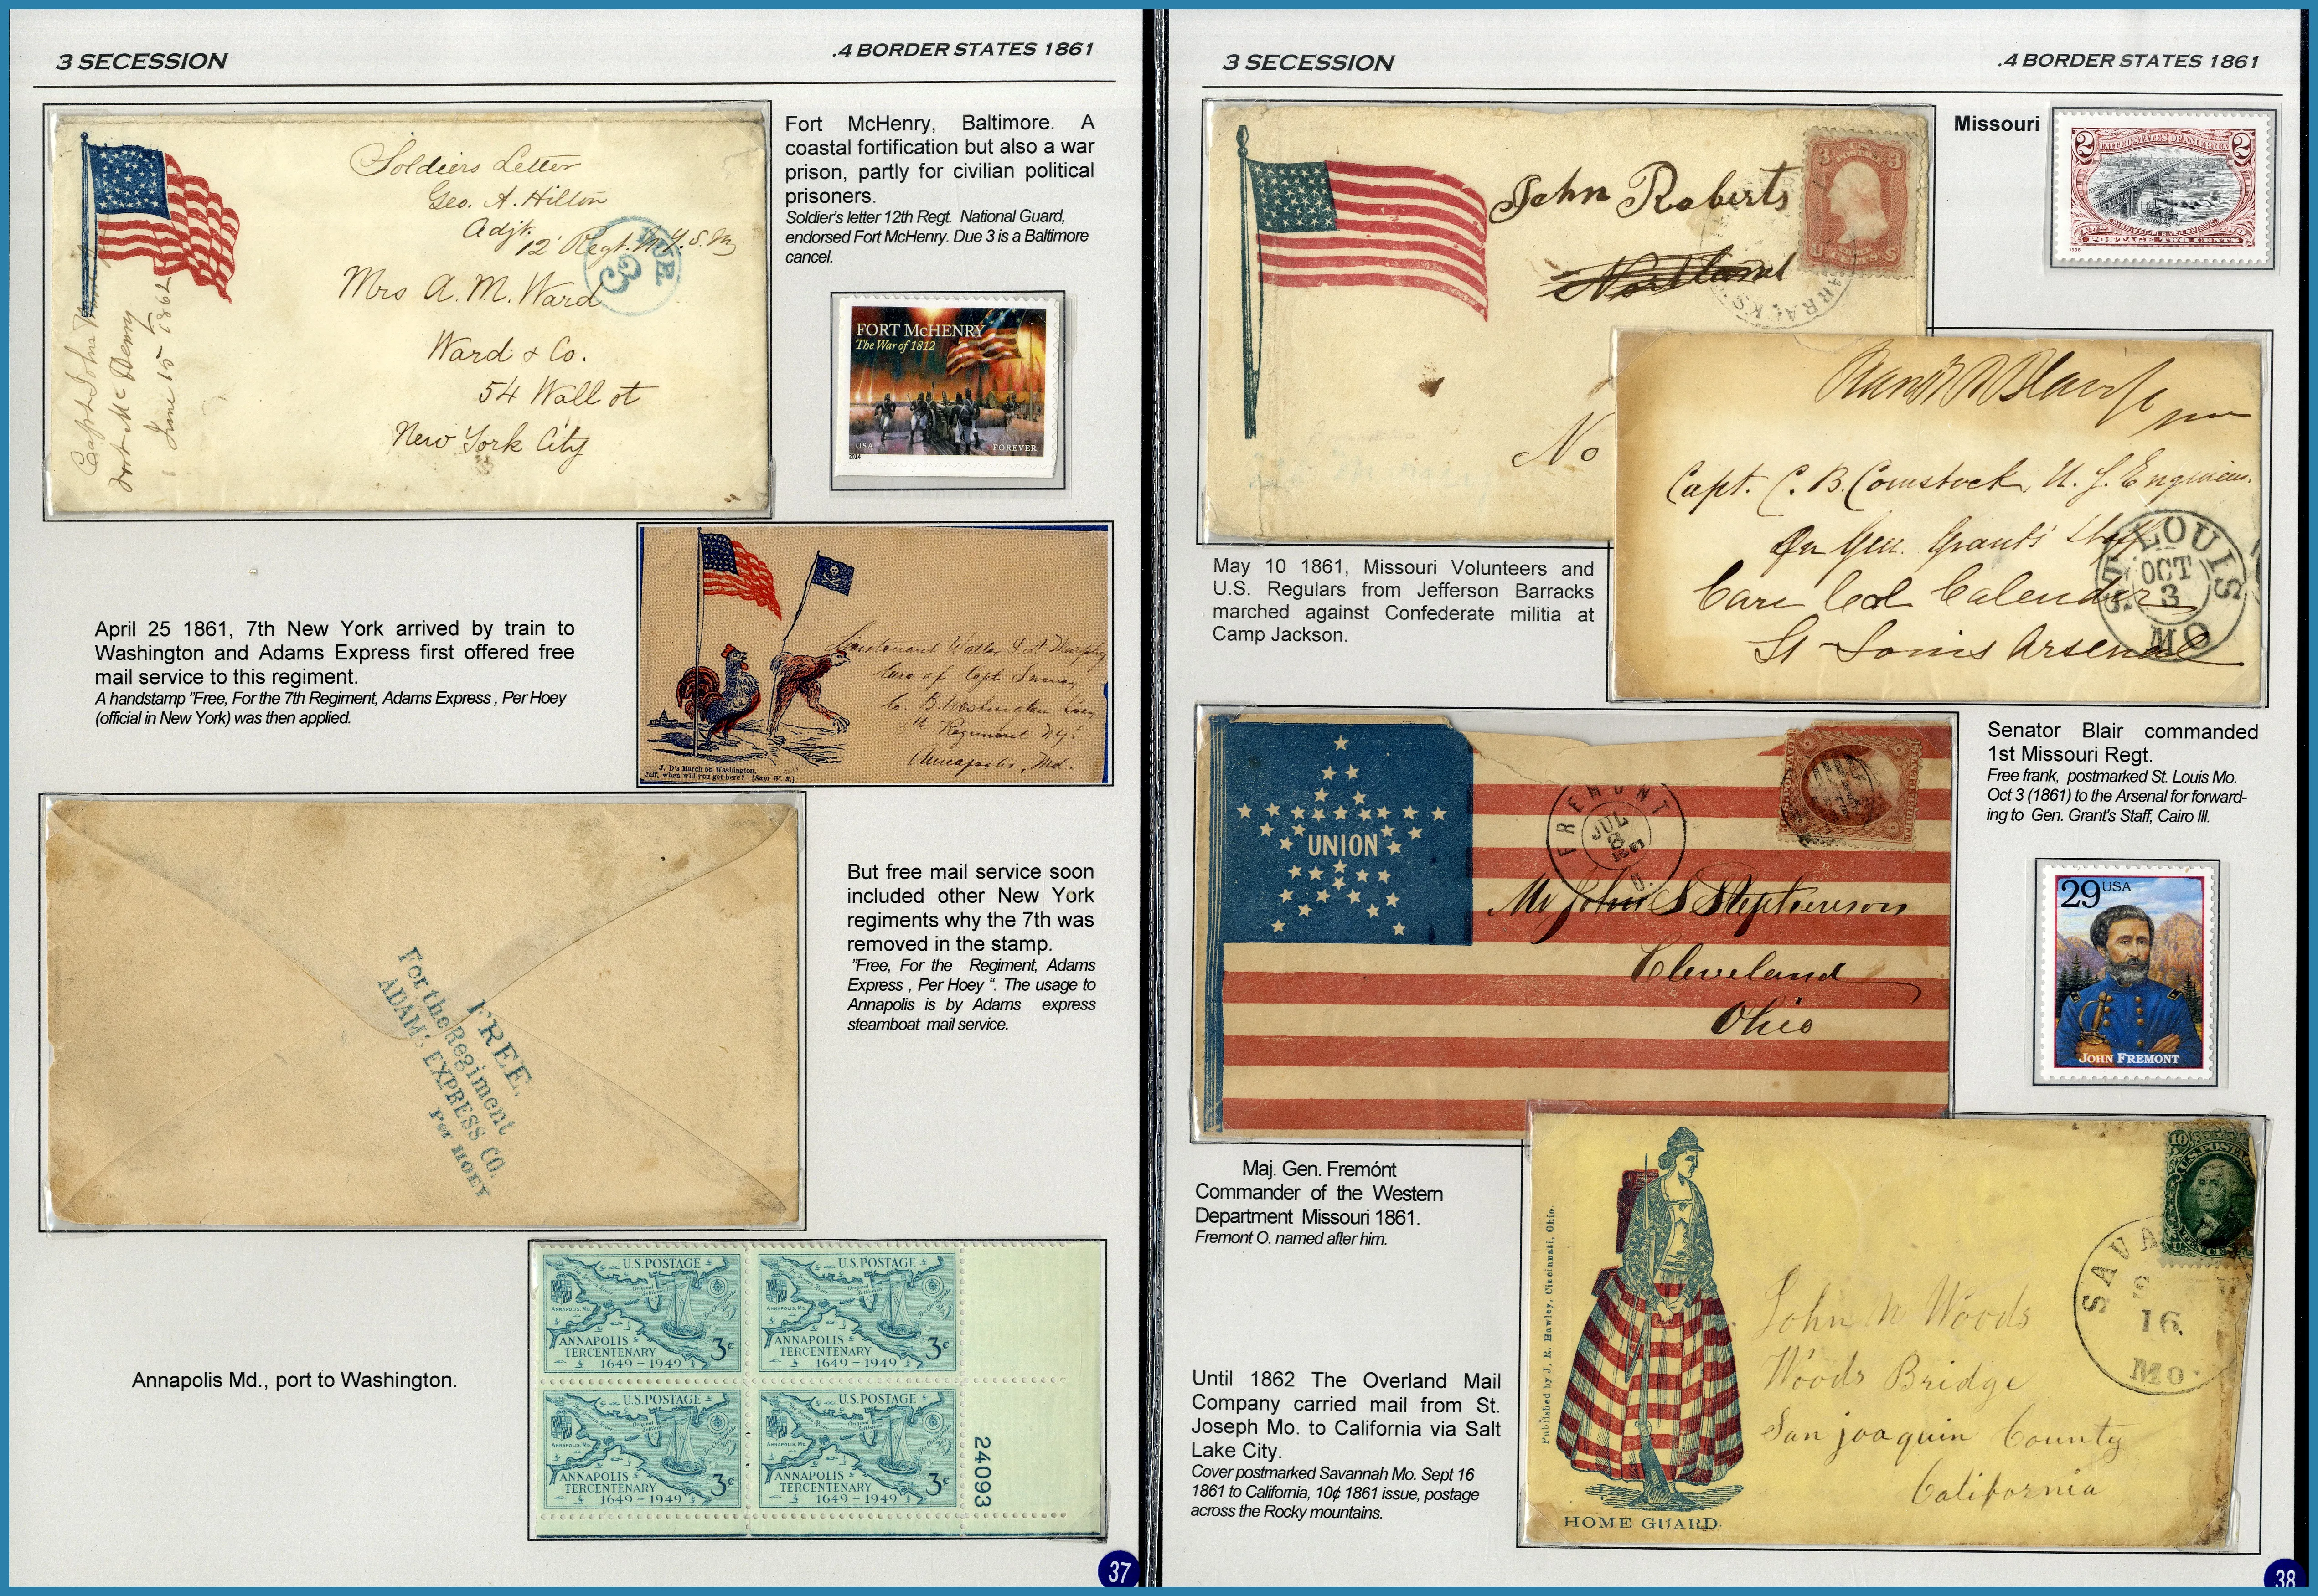 3 SECESSION
.4 BORDER STATES 1861
Soldiers Letter
Geo. A. Hilton
Adjt.
12 Regt. N.Y.S.M.
DUE
3
Mrs A. M. Ward
Ward & Co.
54 Wall st
New York City
Capt John
Fort McHenry
June 15 1862
Fort McHenry, Baltimore. A
coastal fortification but also a war
prison, partly for civilian political
prisoners.
Soldier's letter 12th Regt. National Guard,
endorsed Fort McHenry. Due 3 is a Baltimore
cancel.
FORT McHENRY
The War of 1812
USA
FOREVER
2014
April 25 1861, 7th New York arrived by train to
Washington and Adams Express first offered free
mail service to this regiment.
A handstamp "Free, For the 7th Regiment, Adams Express , Per Hoey
(official in New York) was then applied.
Lieutenant Walter
Care of Capt
Co. B. Washington
8th Regiment N.Y.
Annapolis, Md.
J. D's March on Washington.
Jeff, when will you get here? [Says W. S.]
FREE.
For the Regiment
ADAMS EXPRESS CO.
Per HOEY
But free mail service soon
included other New York
regiments why the 7th was
removed in the stamp.
"Free, For the Regiment, Adams
Express , Per Hoey “. The usage to
Annapolis is by Adams express
steamboat mail service.
Annapolis Md., port to Washington.
U.S. POSTAGE
ANNAPOLIS, MD.
ANNAPOLIS
TERCENTENARY
1649-1949
3¢
U.S. POSTAGE
ANNAPOLIS, MD.
ANNAPOLIS
TERCENTENARY
1649-1949
3¢
U.S. POSTAGE
ANNAPOLIS, MD.
ANNAPOLIS
TERCENTENARY
1649-1949
3¢
U.S. POSTAGE
ANNAPOLIS, MD.
ANNAPOLIS
TERCENTENARY
1649-1949
3¢
24093
37
3 SECESSION
.4 BORDER STATES 1861
John Roberts
No
ARRACKS
Missouri
2 UNITED STATES OF AMERICA 2
MISSISSIPPI RIVER BRIDGE
TWO
POSTAGE TWO CENTS
1998
Capt. C. B. Comstock, U. S. Engineers.
On Gen. Grant's Staff
Care Col Calender
St Louis Arsenal
ST. LOUIS
OCT
3
MO
May 10 1861, Missouri Volunteers and
U.S. Regulars from Jefferson Barracks
marched against Confederate militia at
Camp Jackson.
Senator Blair commanded
1st Missouri Regt.
Free frank, postmarked St. Louis Mo.
Oct 3 (1861) to the Arsenal for forward-
ing to Gen. Grant's Staff, Cairo Ill.
UNION
FREMONT
JUL
O.
Mr John S Stephenson
Cleveland
Ohio
29 USA
JOHN FREMONT
Maj. Gen. Fremónt
Commander of the Western
Department Missouri 1861.
Fremont O. named after him.
Until 1862 The Overland Mail
Company carried mail from St.
Joseph Mo. to California via Salt
Lake City.
Cover postmarked Savannah Mo. Sept 16
1861 to California, 10¢ 1861 issue, postage
across the Rocky mountains.
Published by J. R. Hawley, Cincinnati, Ohio.
HOME GUARD.
10
U.S. POSTAGE
SAVA
16.
MO.
John N Woods
Woods Bridge
San joaquin County
California
38